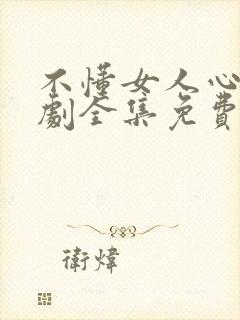 不懂女人心
劇全集免費
衛煒